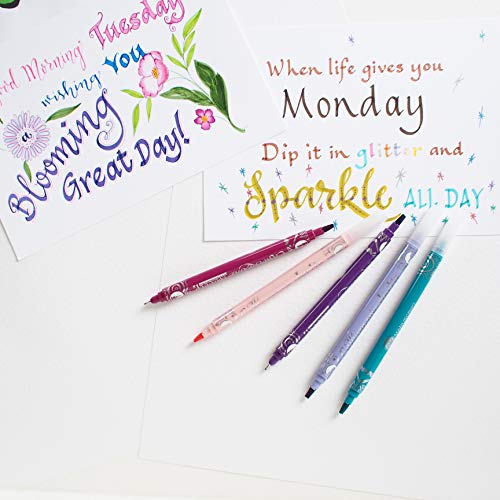 Good Morning Tuesday
wishing you
a
Blooming
Great Day!
When life gives you
Monday
Dip it in glitter and
Sparkle ALL DAY